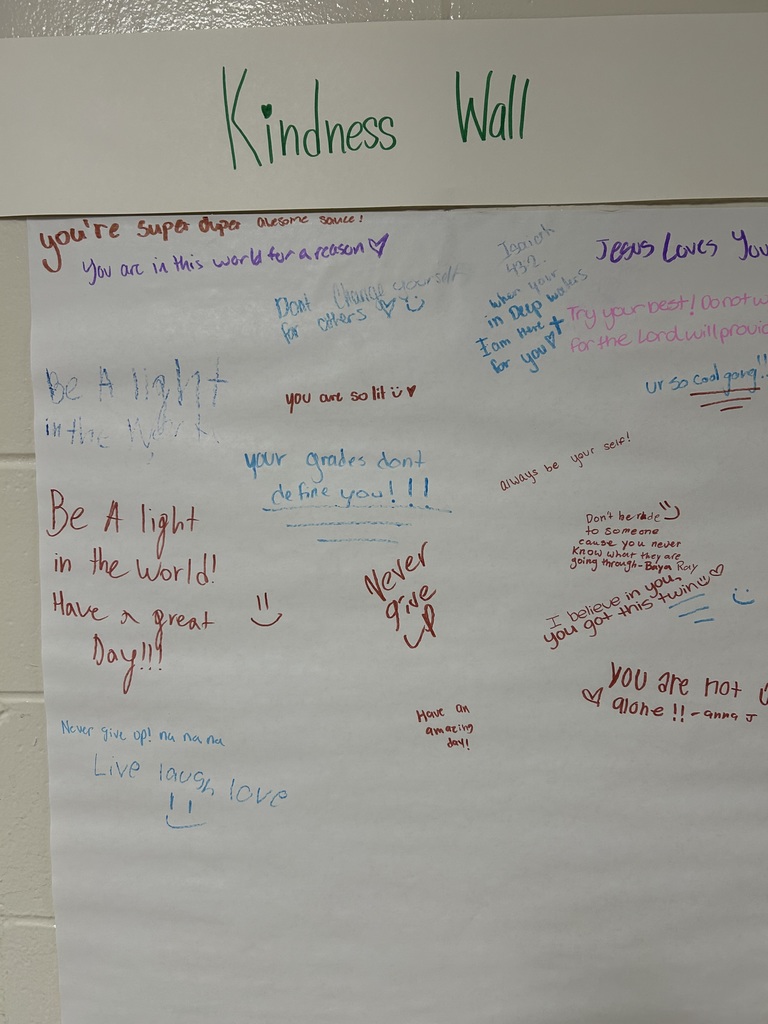 Kindness Wall
you're super duper awesome sauce!
You are in this world for a reason
Dont Change yourself
for others
43:2
when your
in Deep waters
I am Here
for you
Jesus Loves You
Try your best! Do not w
for the Lord will provid
ur so cool gang!!
Be A light
in the World
you are so lit
your grades dont
define you!!!
always be your self!
Be A light
in the World!
Have a great
Day!!!
Never
give
up
Don't be rude
to someone
cause you never
know what they are
going through - Baya Ray
I believe in you,
you got this twin
You are not
alone!! - anna J
Have an
amazing
day!
Never give op! na na na
Live laugh love